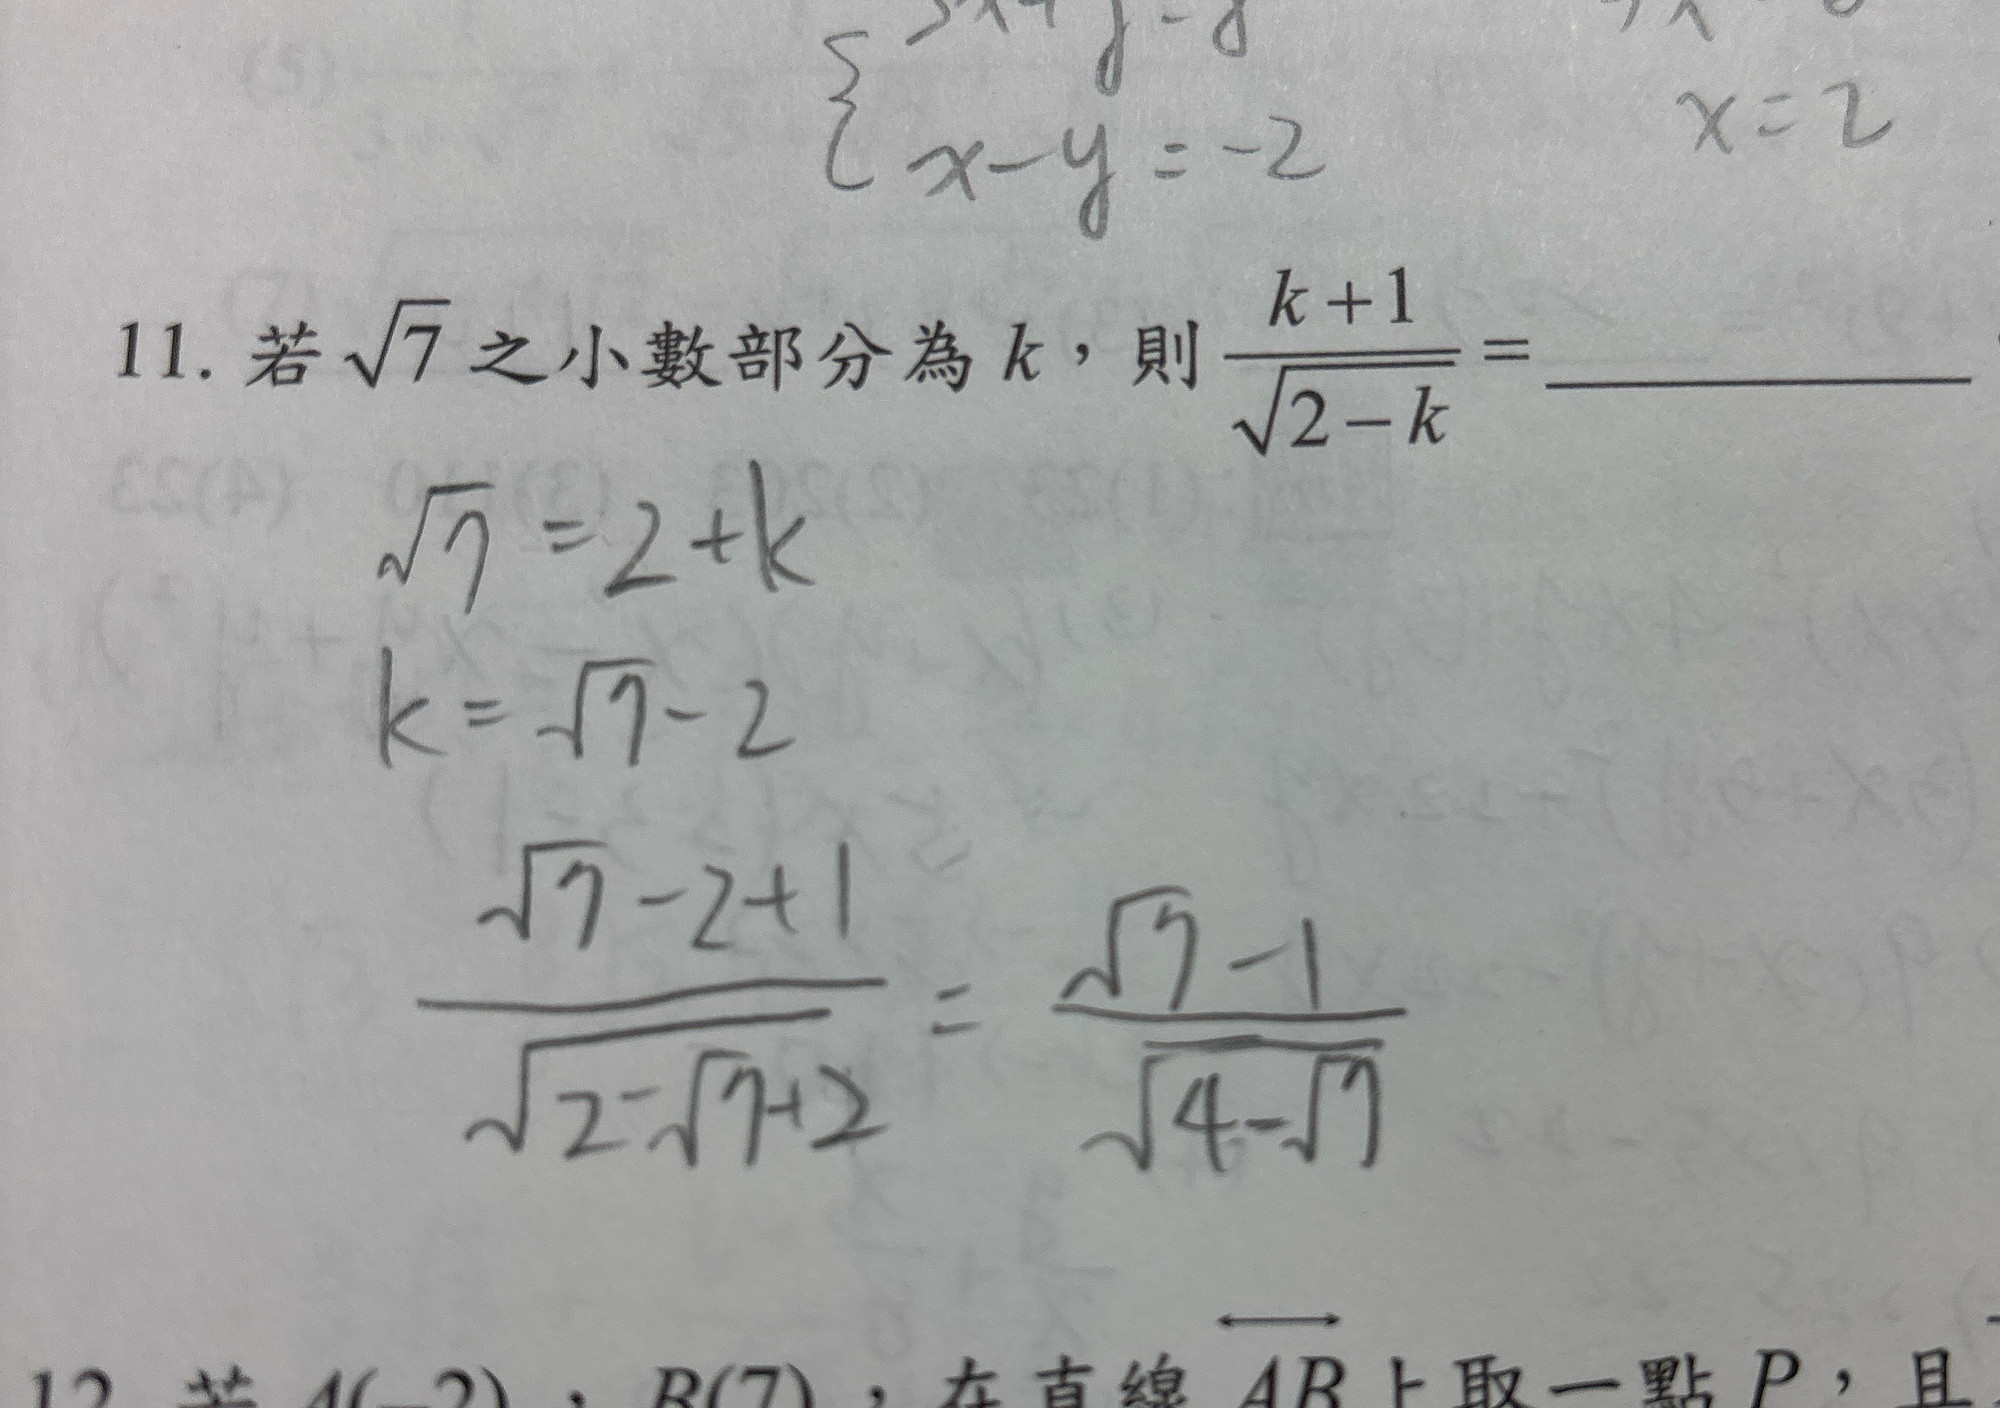 x-y=-2
x=2
11. 若 √7 之小數部分為 k，則 (k+1)/√(2-k) = ________
√7 = 2+k
k = √7-2
(√7-2+1)/√(2-√7+2) = (√7-1)/√(4-√7)
12. 若 A(-2)，B(7)，在直線 AB 上取一點 P，且